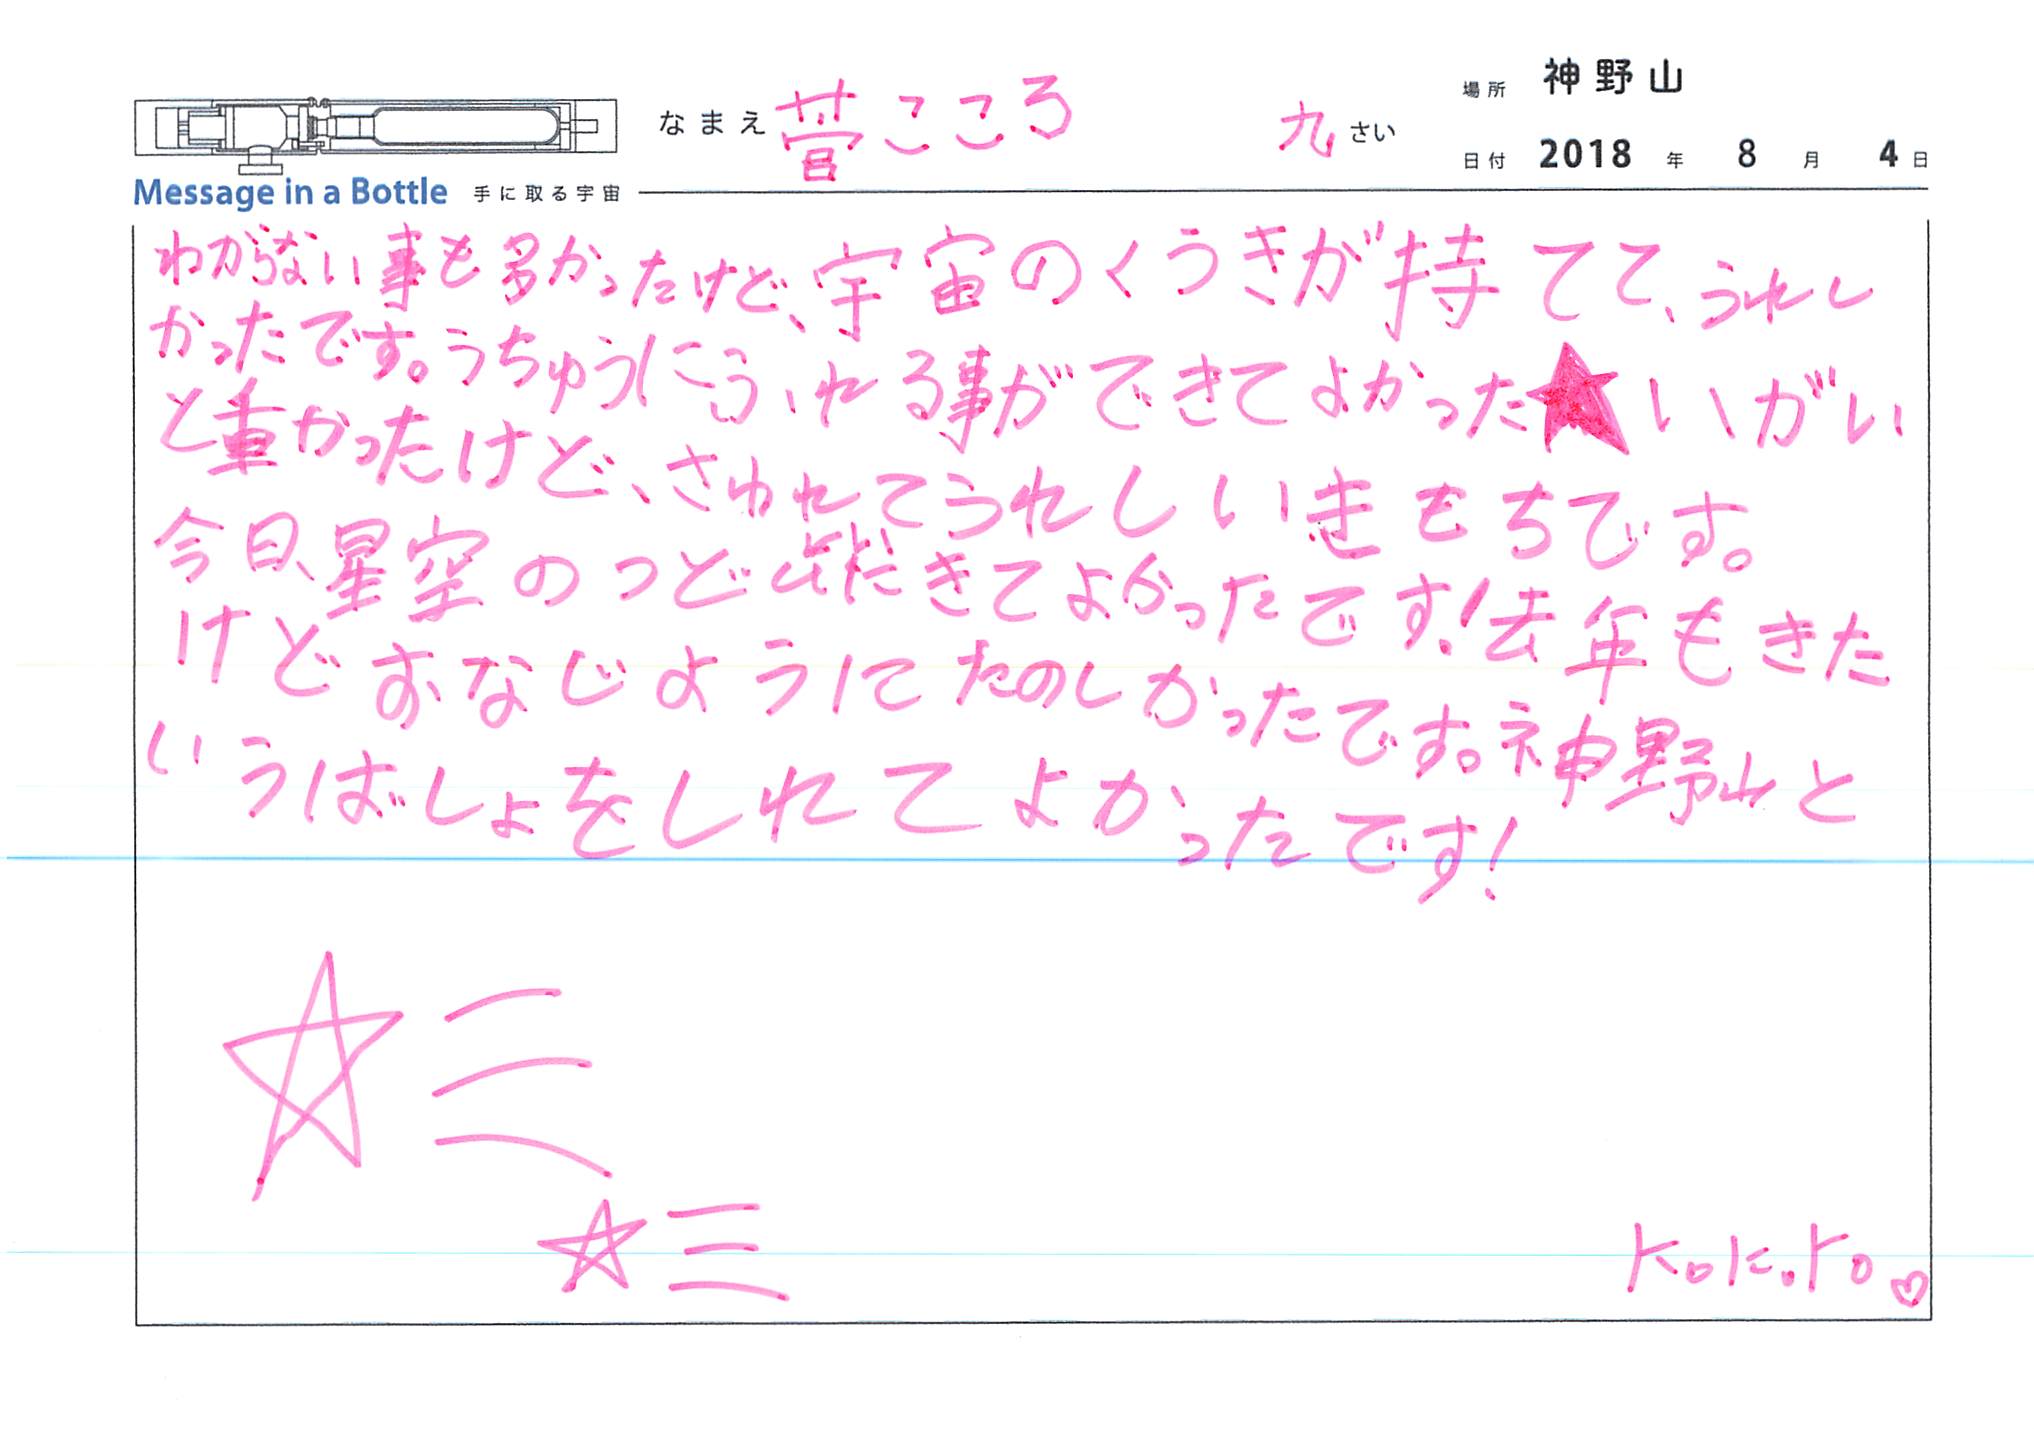 なまえ 菅こころ 九さい
場所 神野山
日付 2018年 8月 4日
Message in a Bottle 手に取る宇宙
わからない事も多かったけど、宇宙のくうきが持てて、うれし
かったです。うちゅうにふれる事ができてよかった★いがい
と重かったけど、さわれてうれしいきもちです。
今日、星空のつどいにきてよかったです!去年もきた
けどおなじようにたのしかったです。神野山と
いうばしょをしれてよかったです!
KoKoro♡